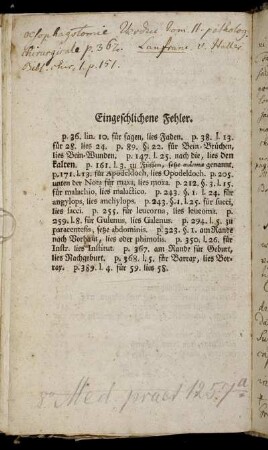 oesophagotomie
p. 362. Lanfranc. v. Haller
Bibl. chir. 1. p. 151.
Eingeschlichene Fehler.
p. 36. lin. 10. für sagen, lies Faden. p. 38. l. 13.
für 28. lies 24. p. 89. §. 22. für Bein-Brüchen,
lies Bein-Wunden. p. 147. l. 25. nach die, lies den
kalten. p. 161. l. 3. zu Füssen, setze genannt.
p. 171. l. 13. für Apodeldoch, lies Opodeldoch. p. 205.
unter der Nota für lies moxa. p. 212. §. 3. l. 15.
für malachio, lies malactico. p. 243. §. 1. l. 24. für
angylops, lies anchylops. p. 243. §. 1. l. 25. für succi,
lies sacci. p. 255. für leucorna, lies leucoma. p.
259. l. 8. für Gulenus, lies Galenus. p. 294. l. 5. zu
paracentesis, setze abdominis. p. 323. §. 1. am Rande
noch Vorhaut, lies oder phimosis. p. 350. l. 26. für
Instr. lies Institut. p. 367. am Rande für Geburt,
lies Nachgeburt. p. 368. l. 5. für Barray, lies Ber-
ray. p. 389. l. 4. für 59. lies 58.
Med. pract 125.7a